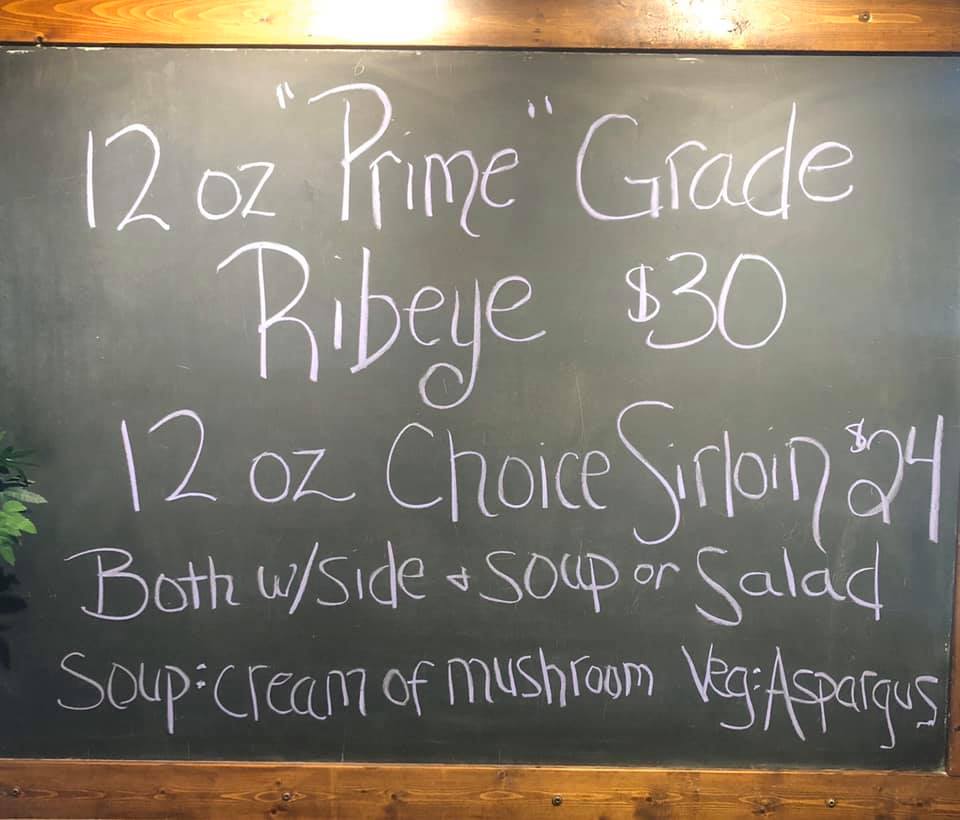 12 oz "Prime" Grade
Ribeye $30
12 oz Choice Sirloin $24
Both w/side & soup or Salad
Soup: cream of mushroom Veg: Aspargus